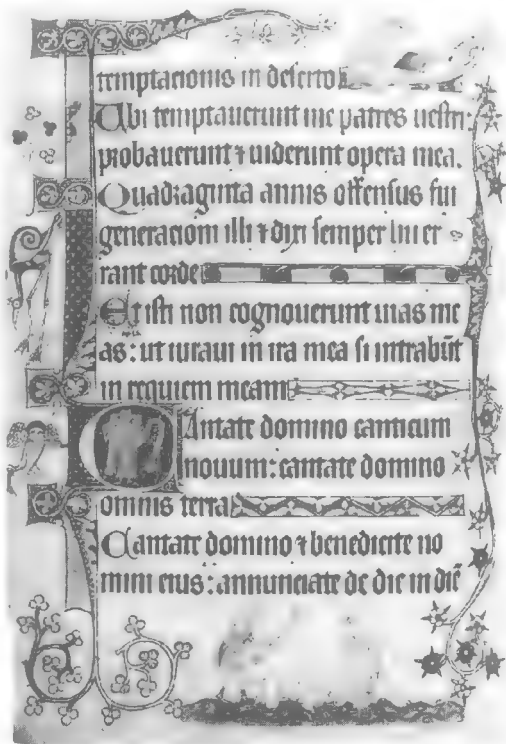 temptacionis in deserto
Ubi temptauerunt me patres uestri:
probauerunt ⁊ uiderunt opera mea.
Quadraginta annis offensus fui
generacioni illi ⁊ dixi semper hii er
rant corde
Et isti non cognouerunt uias me
as: ut iuraui in ira mea si intrabūt
in requiem meam
Cantate domino canticum
nouum: cantate domino
omnis terra
Cantate domino ⁊ benedicite no
mini eius: annunciate de die in diē